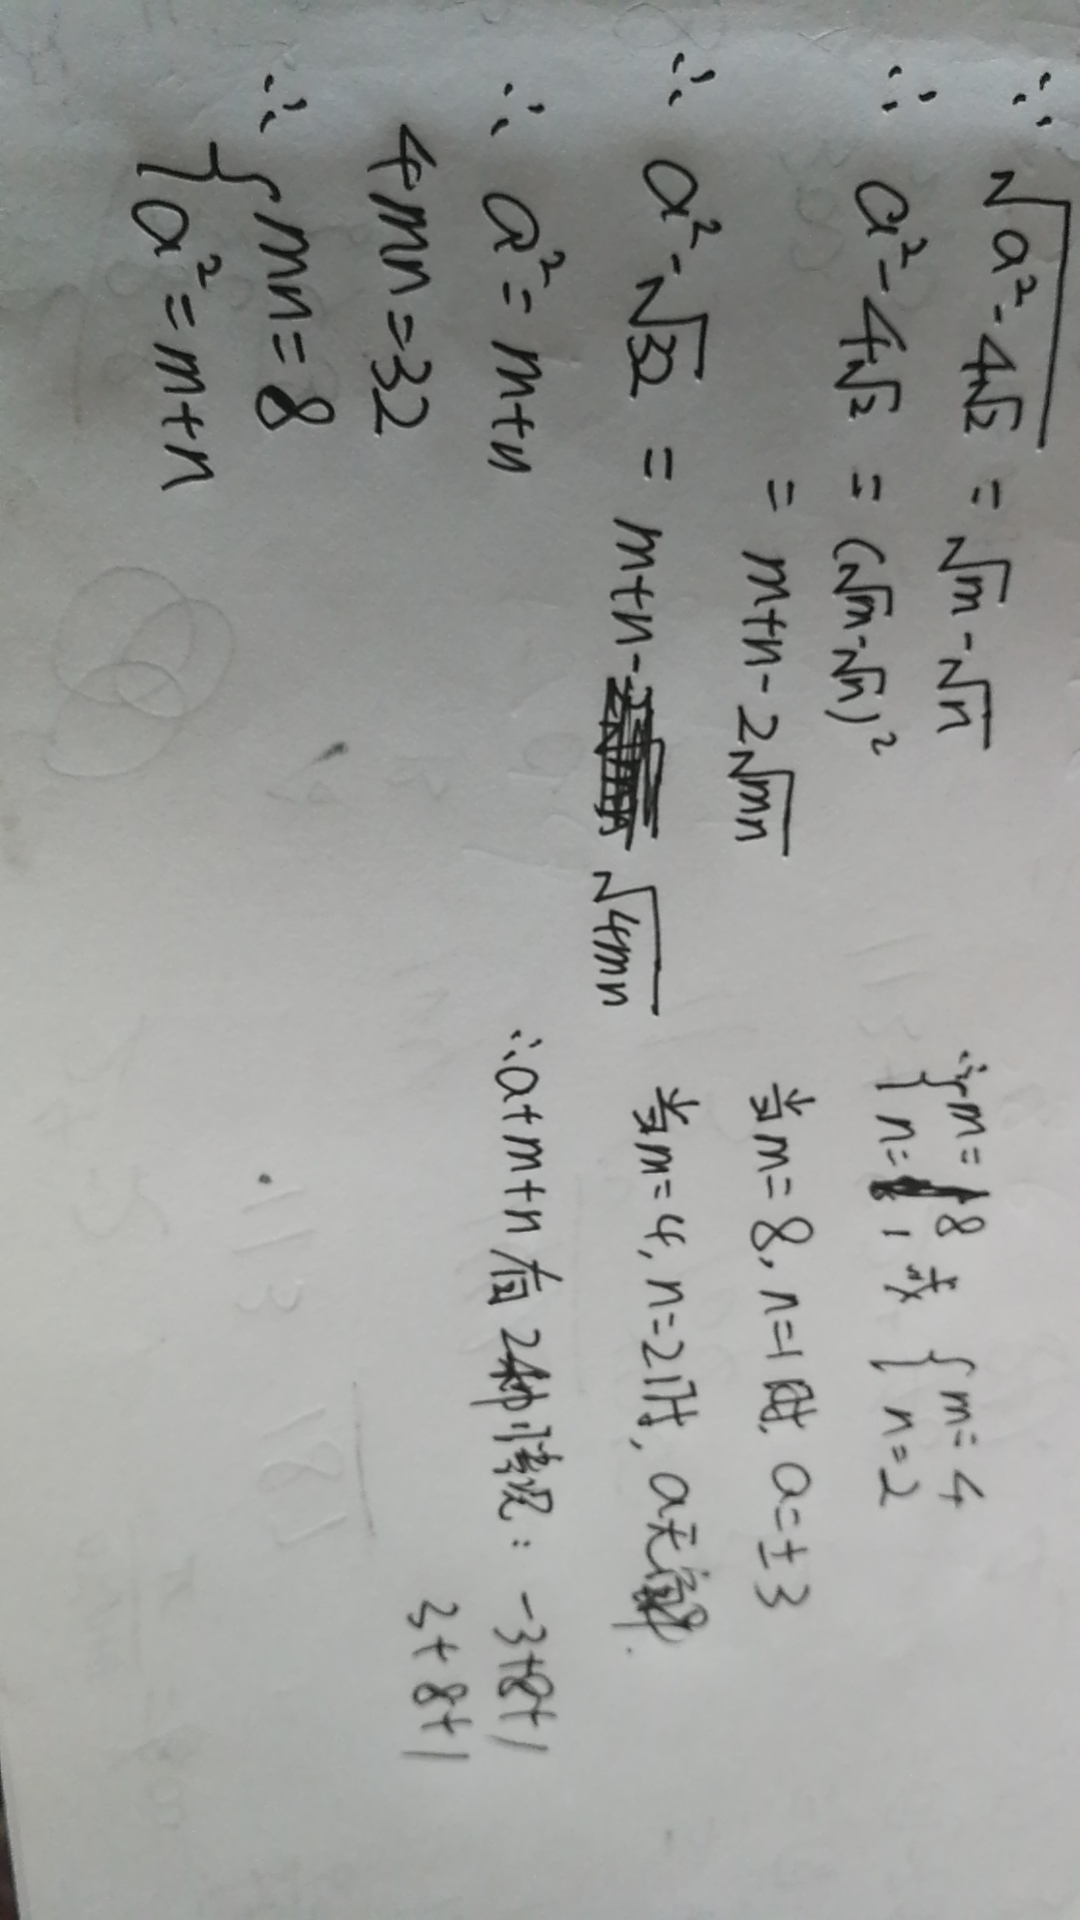 ∵ √(a²-4√2) = √m - √n
∴ a²-4√2 = (√m-√n)²
= m+n-2√mn
∴ a²-√32 = m+n-√4mn
∴ a² = m+n
4mn=32
∴ { mn=8
{ a²=m+n
∴ { m=8 或 { m=4
{ n=1 { n=2
当m=8, n=1时, a=±3
当m=4, n=2时, a无解.
∴a+m+n有2种情况: -3+8+1
3+8+1